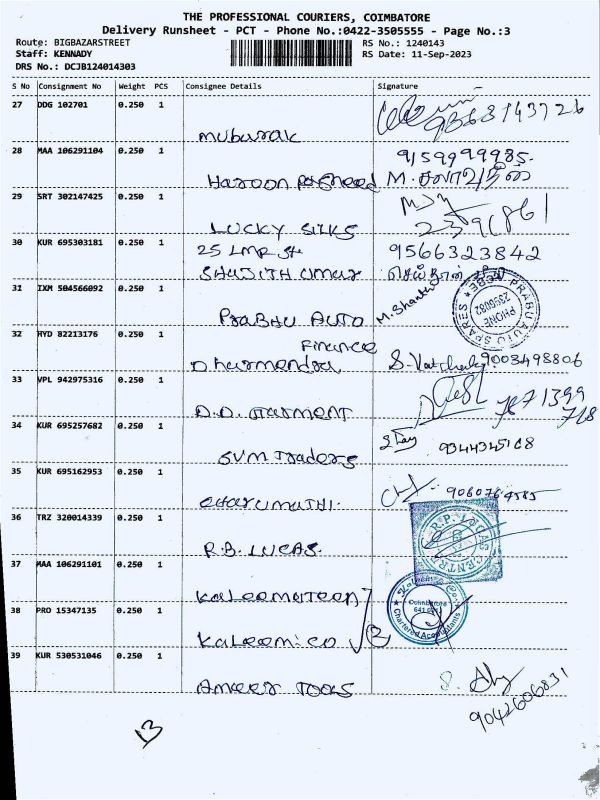 THE PROFESSIONAL COURIERS, COIMBATORE
Delivery Runsheet - PCT - Phone No.:0422-3505555 - Page No.:3
Route: BIGBAZARSTREET RS No.: 1240143
Staff: KENNADY RS Date: 11-Sep-2023
DRS No.: DCJB124014303
S No Consignment No Weight PCS Consignee Details Signature
27 DDG 102701 0.250 1
Mubarak
28 MAA 106291104 0.250 1 9159999985.
Haroon Rasheed M.
29 SRT 302147425 0.250 1
LUCKY SILKS
30 KUR 695303181 0.250 1 25 LMR St 9566323842
SHAJITH UMAR
31 IXM 504566092 0.250 1
Prabhu AUTO M. Shanthi
PRABU AUTO SPARES PHONE 2390082
32 HYD 82213176 0.250 1 Finance
Dharmendra 9003498806
33 VPL 942975316 0.250 1
D.D. Garment
34 KUR 695257682 0.250 1 9344345108
SVM Traders
35 KUR 695162953 0.250 1
CHARUMATHI.
36 TRZ 320014339 0.250 1
R.B. LUCAS.
37 MAA 106291101 0.250 1
Kaleemateen
38 PRO 15347135 0.250 1
Coimbatore
Chartered Accountants
Kaleemico 2
39 KUR 530531046 0.250 1
Ameer Tools 9042606831
13